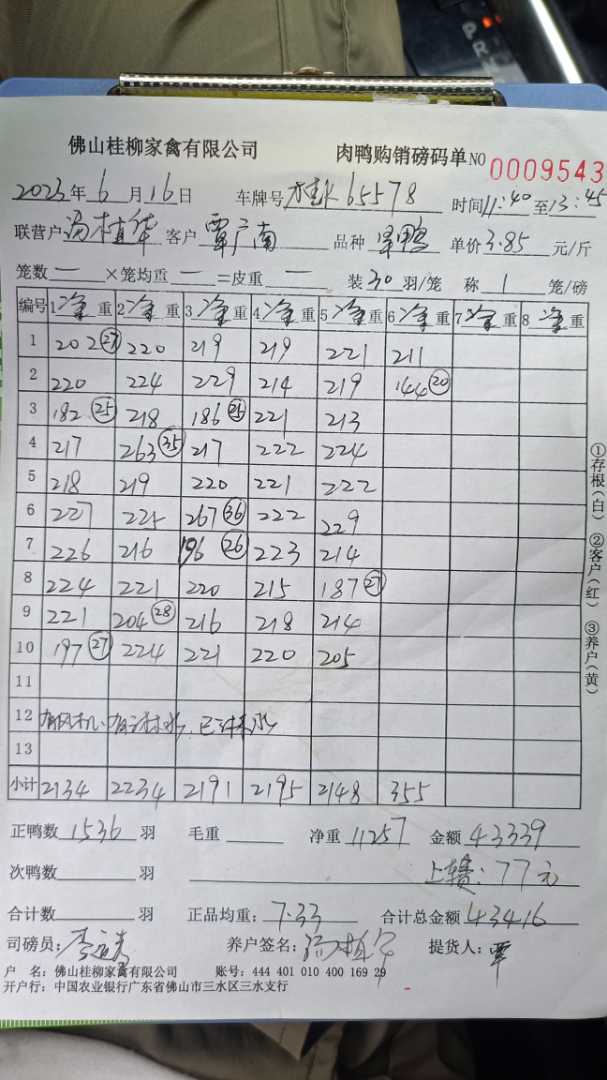 佛山桂柳家禽有限公司 肉鸭购销磅码单NO 0009543
2023年6月16日 车牌号 65578 时间11:40至13:45
联营户 客户 覃广南 品种 单价3.85元/斤
笼数一×笼均重一=皮重一 装30羽/笼 称1笼/磅
编号 1净重 2净重 3净重 4净重 5净重 6净重 7净重 8净重
1 202㉗ 220 219 219 221 211
2 220 224 229 214 219 144⑳
3 182㉕ 218 186㉕ 221 213
4 217 263㉟ 217 222 224
5 218 219 220 221 222
6 227 225 267㊱ 222 229
7 226 216 196㉖ 223 214
8 224 221 220 215 187㉗
9 221 204㉘ 216 218 214
10 197㉗ 224 221 220 205
11
12 有风机、有淋水,已淋水
13
小计 2134 2234 2191 2195 2148 355
正鸭数1536羽 毛重 净重11257 金额43339
次鸭数 羽 上车费:77元
合计数 羽 正品均重:7.33 合计总金额43416
司磅员: 养户签名: 提货人:覃
户 名:佛山桂柳家禽有限公司 账号:444 401 010 400 169 29
开户行:中国农业银行广东省佛山市三水区三水支行
①存根(白) ②客户(红) ③养户(黄)